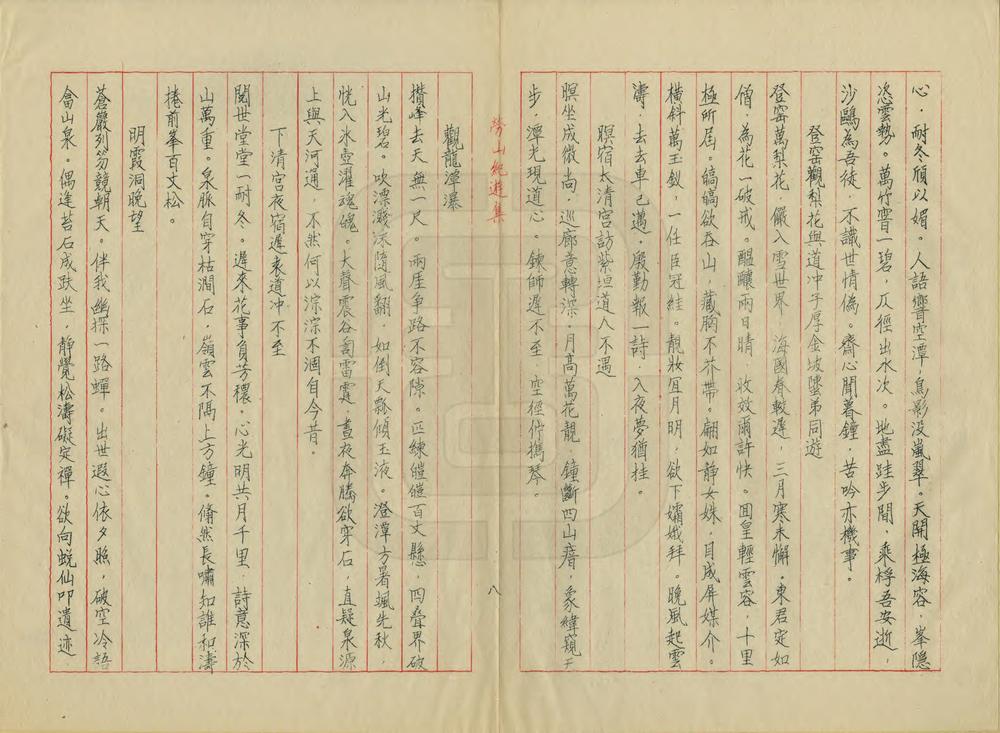 心。耐冬頎以媚。人語響空潭，鳥影没嵐翠。天開極海容，峯隱
恣雲勢。萬竹響一碧，仄徑出水次。地盡跬步間，乘桴吾安逝，
沙鷗為吾徒，不識世情偽。齋心聞暮鐘，苦吟亦機事。
登窑觀梨花與道冲子厚金坡墬弟同遊
登窑萬梨花，儼入雪世界，海國春較遲，三月寒未懈。東君定如
僧，為花一破戒。醞釀兩日晴，收效爾許快。回皇輕雲容，十里
極所屆。皜皜欲吞山，藏胸不芥帶。翩如靜女姝，目成屏媒介。
橫斜萬玉釵，一任臣冠絓。靚妝宜月明，欲下孀娥拜。晚風起雲
濤，去去車已邁。殷勤報一詩，入夜夢猶挂。
暝宿太清宮訪紫垣道人不遇
暝坐成微尚，巡廊意轉深。月高萬花靚，鐘斷四山瘖，象緯窺天
步，潭光現道心。鍊師遲不至，空徑佇攜琴。
勞山紀遊集
八
觀龍潭瀑
攢峰去天無一尺。兩厓爭路不容隙。匹練皚皚百丈懸，四疊界破
山光碧。吹漂濺沫隨風翻，如倒天瓢傾玉液。澄潭方暑颯先秋，
恍入氷壺濯魂魄。大聲震谷訇雷霆，晝夜奔騰欲穿石，直疑泉源
上與天河通，不然何以淙淙不涸自今昔。
下清宮夜宿遲袁道冲不至
閱世堂堂一耐冬。遲來花事負芳穠。心光明共月千里，詩意深於
山萬重。泉脈自穿枯澗石，嶺雲不隔上方鐘。翛然長嘯知誰和濤
捲前峯百丈松。
明霞洞晚望
蒼巖列笏競朝天。伴我幽探一路蟬。出世遐心依夕照，破空冷語
畲山泉。偶逢苔石成趺坐，靜覺松濤礙定禪。欲向蜕仙叩遺迹